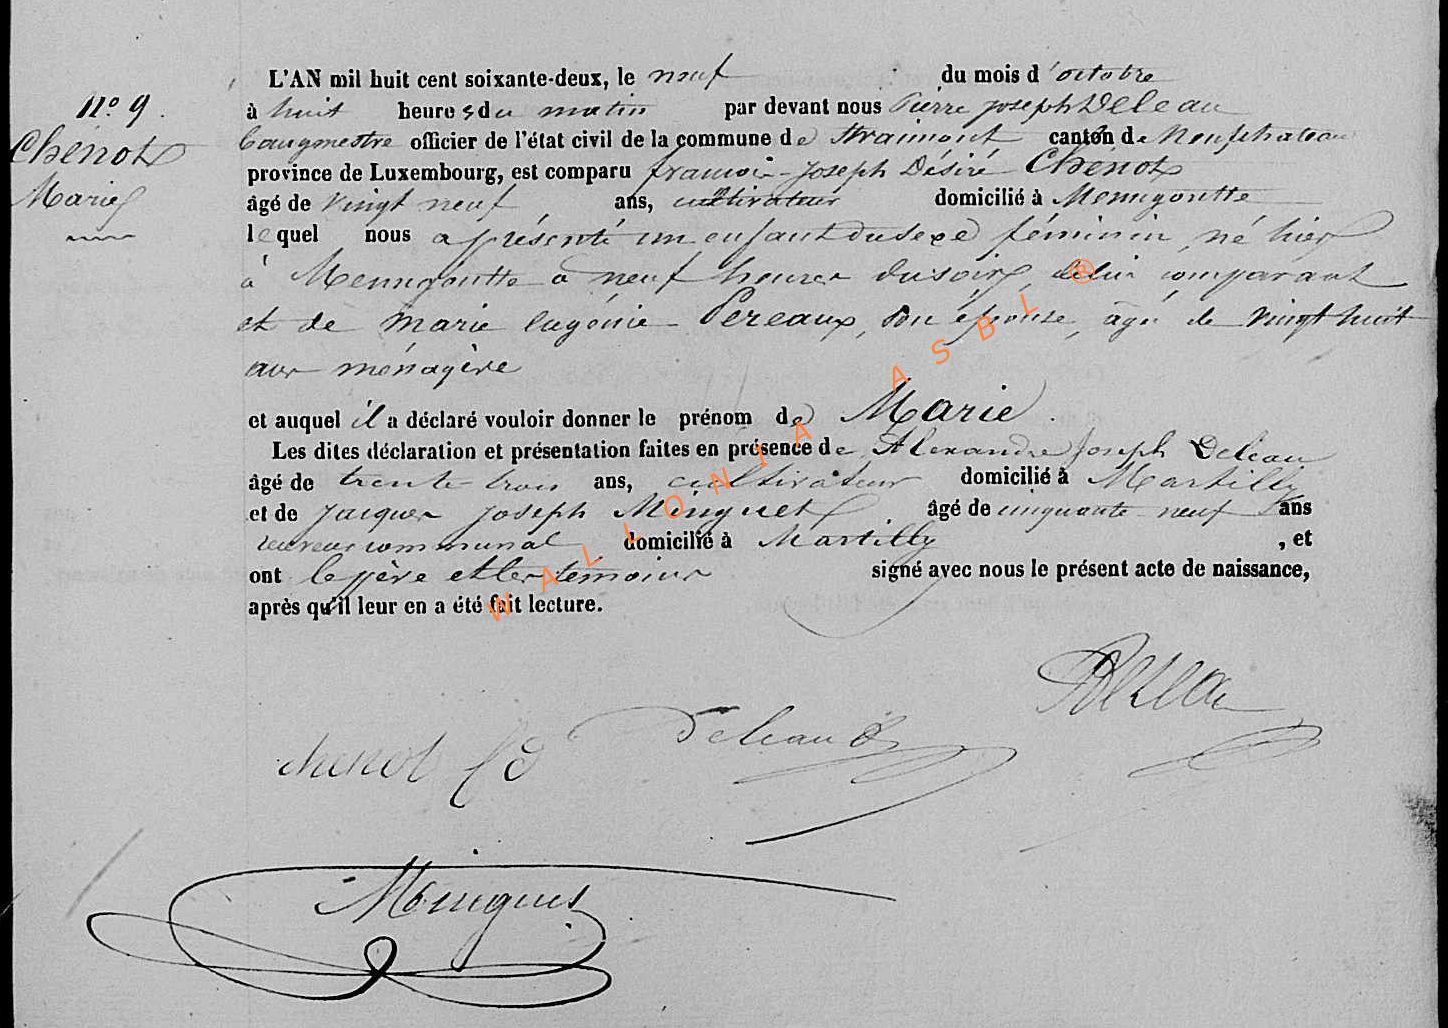 N.o 9.
Chenot
Marie
L'AN mil huit cent soixante-deux, le neuf du mois d'octobre
à huit heures du matin par devant nous Pierre joseph Deleau
bourgmestre officier de l'état civil de la commune de Straimont canton de Neufchateau
province de Luxembourg, est comparu françois-Joseph Désiré Chenot
âgé de vingt neuf ans, cultivateur domicilié à Menugoutte
lequel nous a présenté un enfant du sexe féminin, né hier
à Menugoutte à neuf heures du soir, de lui comparant
et de Marie Eugénie Pereaux, son épouse, âgée de vingt huit
ans ménagère
et auquel il a déclaré vouloir donner le prénom de Marie
Les dites déclaration et présentation faites en présence de Alexandre Joseph Deleau
âgé de trente-trois ans, cultivateur domicilié à Martilly
et de Jacques Joseph Minguet âgé de cinquante neuf ans
receveur communal domicilié à Martilly , et
ont le père et les témoins signé avec nous le présent acte de naissance,
après qu'il leur en a été fait lecture.
WALLONIA ASBL ®
Deleau
chenot f d
Deleau
Minguet